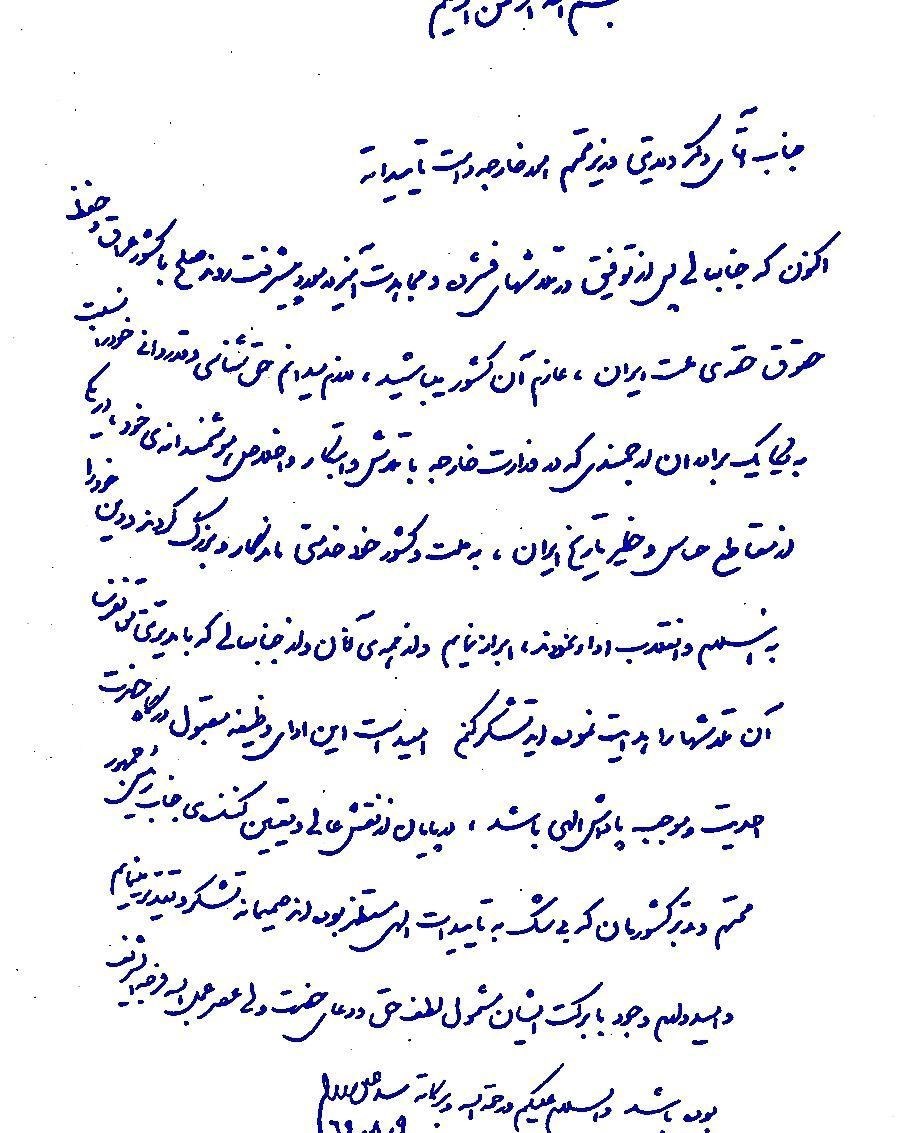 بسم الله الرحمن الرحیم
جناب آقای دکتر ولایتی وزیر محترم امور خارجه دامت تاییداته
اکنون که جنابعالی پس از توفیق در تلاشهای فشرده و مجاهدت آمیز در مورد پیشرفت روند صلح با کشور عراق و حفظ
حقوق حقه‌ی ملت ایران، عازم آن کشور میباشید، لازم میدانم حق شناسی و قدردانی خود را نسبت
به یکایک برادران ارجمندی که در وزارت خارجه با تلاش و ابتکار و اخلاص هوشمندانه‌ی خود، در یکی
از مقاطع حساس و خطیر تاریخ ایران، به ملت و کشور خود خدمتی ماندگار و بزرگ کردند و دین خود را
به اسلام و انقلاب ادا نمودند، ابراز نمایم و از همه‌ی آنان و از جنابعالی که با مدیریتی
آن تلاشها را هدایت نموده اید تشکر کنم امید است این ادای وظیفه مقبول درگاه حضرت
احدیت و موجب پاداش الهی باشد، در پایان از نقش عالی و تعیین کننده‌ی جناب رئیس جمهور
محترم و مدبر کشورمان که بی شک به تاییدات الهی مستظهر بوده اند صمیمانه تشکر و تقدیر مینمایم
و امیدوارم وجود با برکت ایشان مشمول لطف حق و دعای حضرت ولی عصر عجل الله فرجه الشریف
بوده باشد والسلام علیکم و رحمة الله و برکاته سید علی خامنه‌ای